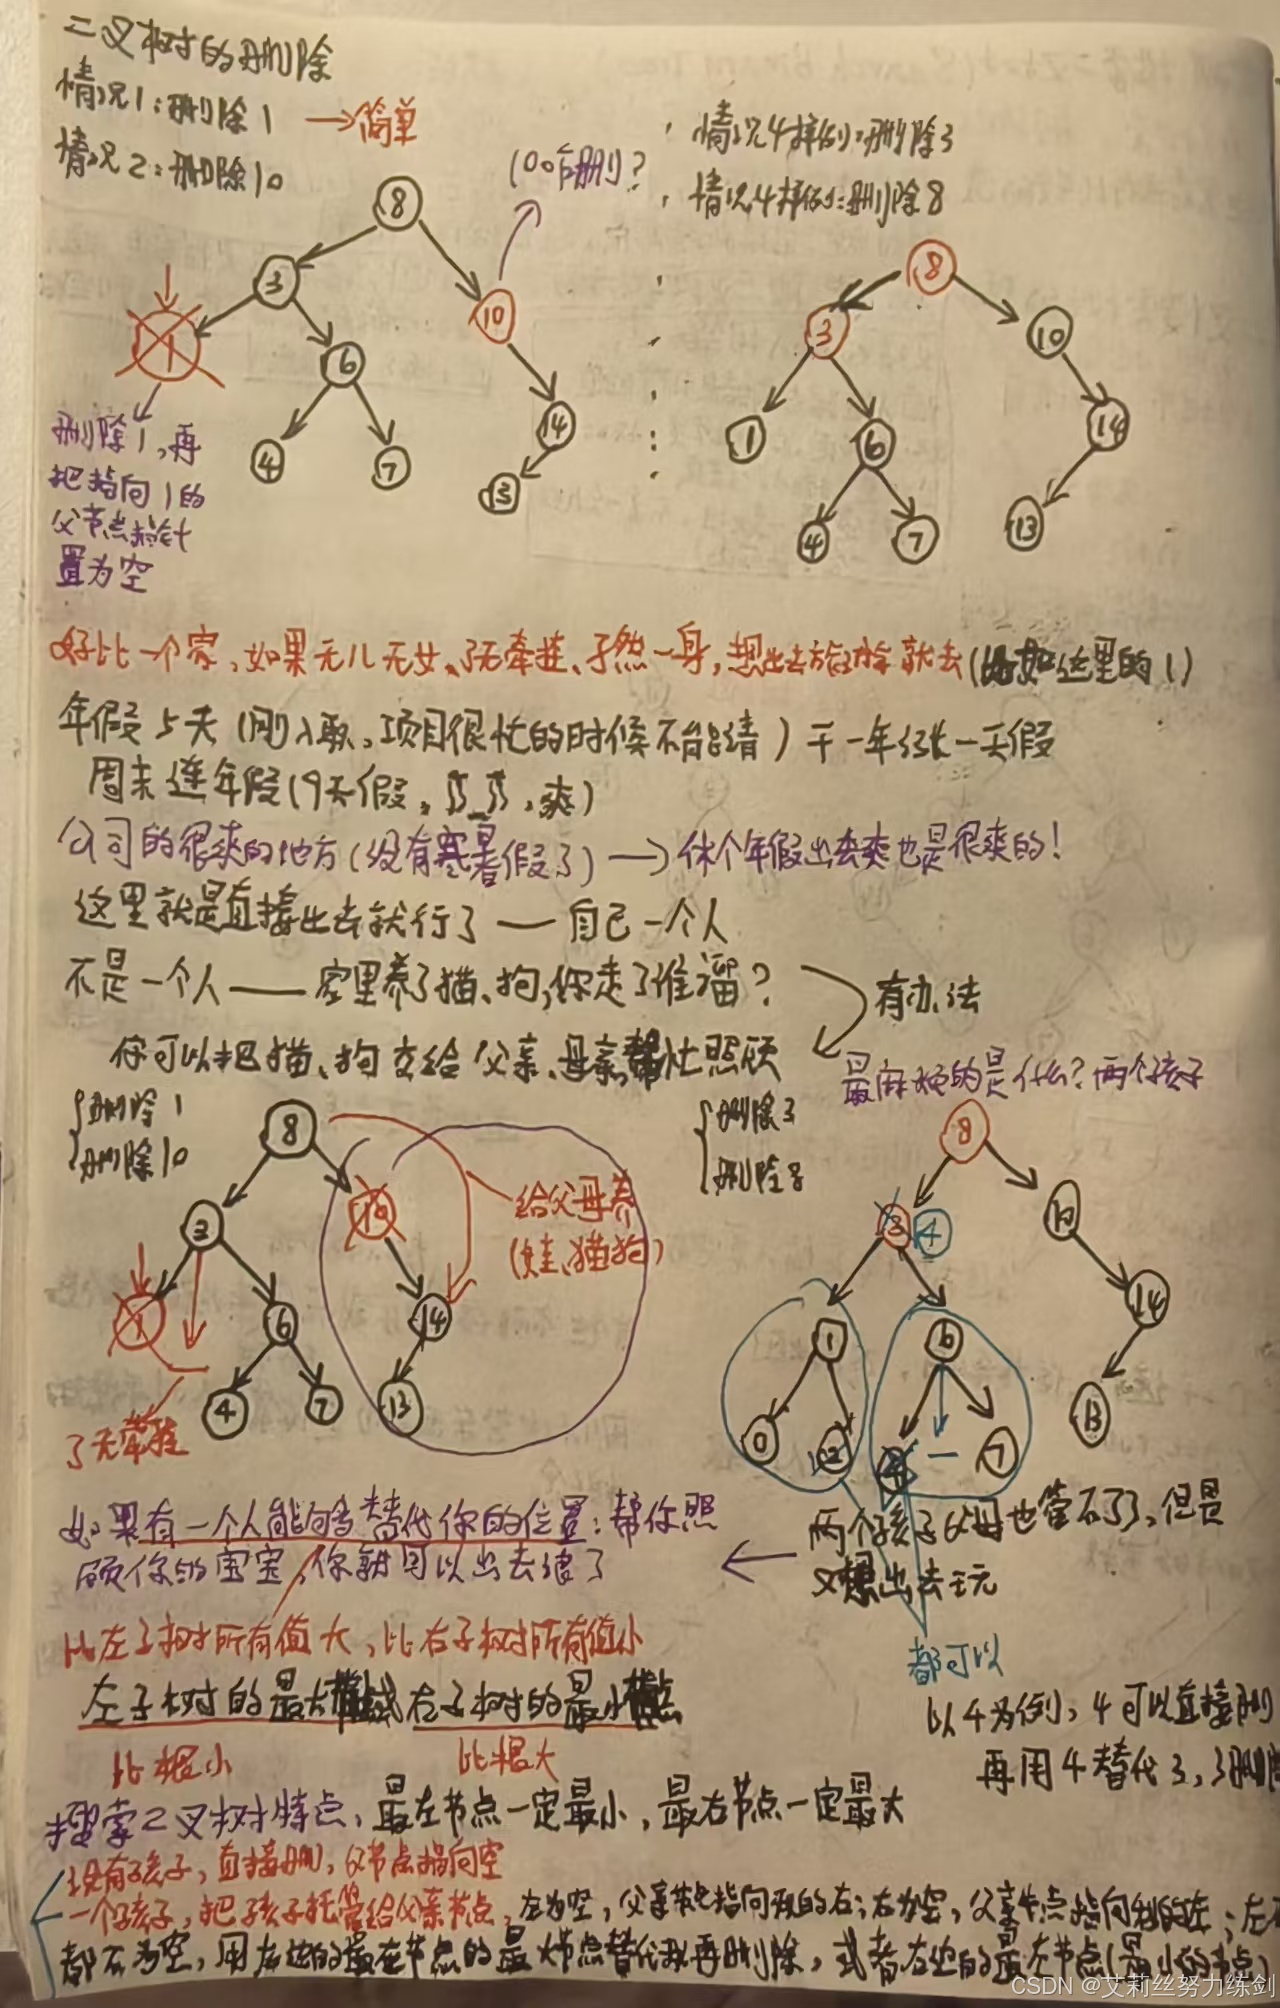 二叉树的删除
情况1:删除1 →简单
情况2:删除10
100台删?
情况4样例:删除3
情况4样例:删除8
8
3
10
1
6
14
4
7
13
8
3
10
1
6
14
4
7
13
删除1,再
把指向1的
父节点指针
置为空
好比一个家,如果无儿无女、了无牵挂、孑然一身,想出去旅游就去(比如这里的1)
年假5天(刚入职、项目很忙的时候不能请)干一年多张一天假
周末连年假(9天假,爽)
公司的很爽的地方(没有寒暑假了)→休个年假出去爽也是很爽的!
这里就是直接出去就行了——自己一个人
不是一个人——家里养了猫、狗,你走了谁溜?
有办法
你可以把猫、狗交给父亲、母亲帮忙照顾
最麻烦的是什么?两个孩子
删除1
删除10
删除3
删除8
8
3
10
给父母养
(娃、猫狗)
1
6
14
4
7
13
了无牵挂
8
3
4
10
1
6
14
0
2
4
7
13
如果有一个人能够替代你的位置:帮你照
顾你的宝宝,你就可以出去浪了
两个孩子父母也管不了了,但是
又想出去玩
比左子树所有值大,比右子树所有值小
都可以
左子树的最大节点或右子树的最小节点
以4为例,4可以直接删
比根小
比根大
再用4替代3,3删除
搜索二叉树特点,最左节点一定最小,最右节点一定最大
没有孩子,直接删,父节点指向空
一个孩子,把孩子托管给父亲节点,左为空,父亲节点指向我的右;右为空,父亲节点指向我的左;左右
都不为空,用左边的最右节点的最大节点替代我再删除,或者右边的最左节点(最小的节点)
CSDN @艾莉丝努力练剑